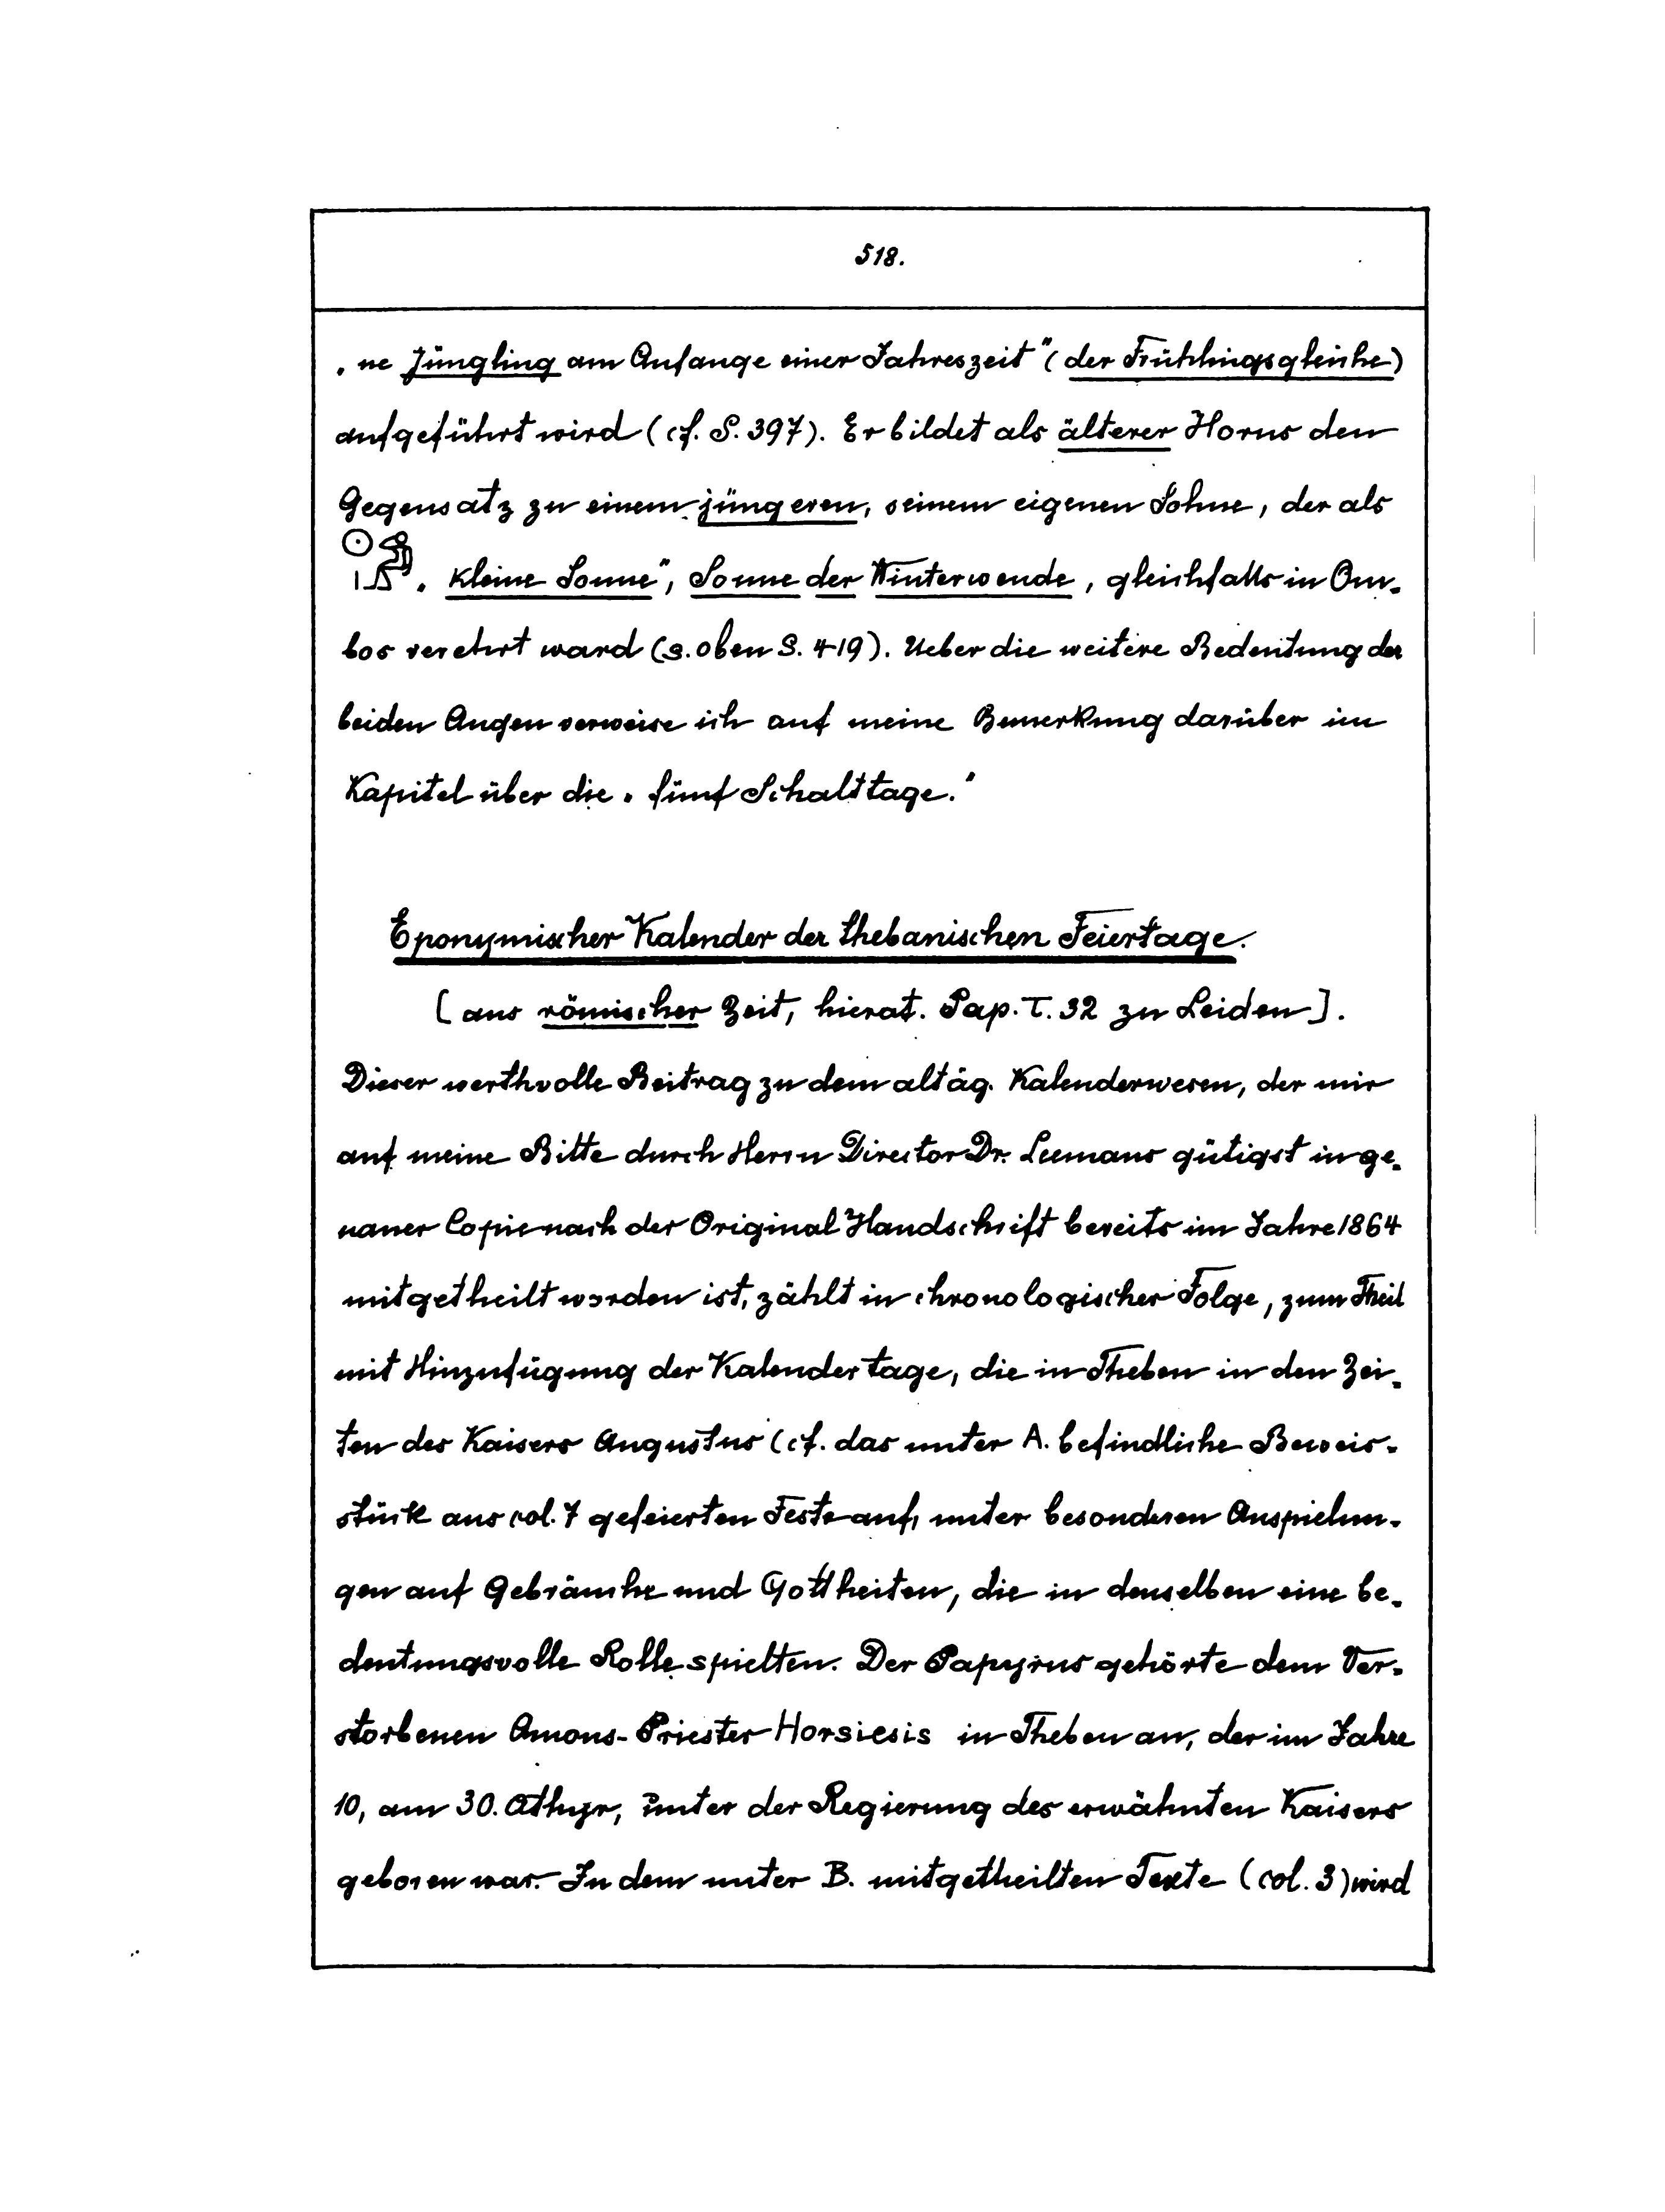 518.
„ne Jüngling am Anfange einer Jahreszeit" (der Frühlingsgleiche)
aufgeführt wird (cf. S. 397). Er bildet als älterer Horus den
Gegensatz zu einem jüngeren, seinem eigenen Sohne, der als
„kleine Sonne", Sonne der Winterwende, gleichfalls in Om-
bos verehrt ward (s. oben S. 419). Ueber die weitere Bedeutung der
beiden Augen verweise ich auf meine Bemerkung darüber im
Kapitel über die „fünf Schalttage."
Eponymischer Kalender der thebanischen Feiertage.
[aus römischer Zeit, hierat. Pap. T. 32 zu Leiden].
Dieser werthvolle Beitrag zu dem altäg. Kalenderwesen, der mir
auf meine Bitte durch Herrn Director Dr. Leemans gütigst in ge-
nauer Copie nach der Original Handschrift bereits im Jahre 1864
mitgetheilt worden ist, zählt in chronologischer Folge, zum Theil
mit Hinzufügung der Kalendertage, die in Theben in den Zei-
ten des Kaisers Augustus (cf. das unter A. befindliche Beweis-
stück aus col. 7 gefeierten Feste auf, unter besonderen Anspielun-
gen auf Gebräuche und Gottheiten, die in denselben eine be-
deutungsvolle Rolle spielten. Der Papyrus gehörte dem Ver-
storbenen Amons-Priester Horsiesis in Theben an, der im Jahre
10, am 30. Athyr, unter der Regierung des erwähnten Kaisers
geboren war. In dem unter B. mitgetheilten Texte (col. 3) wird